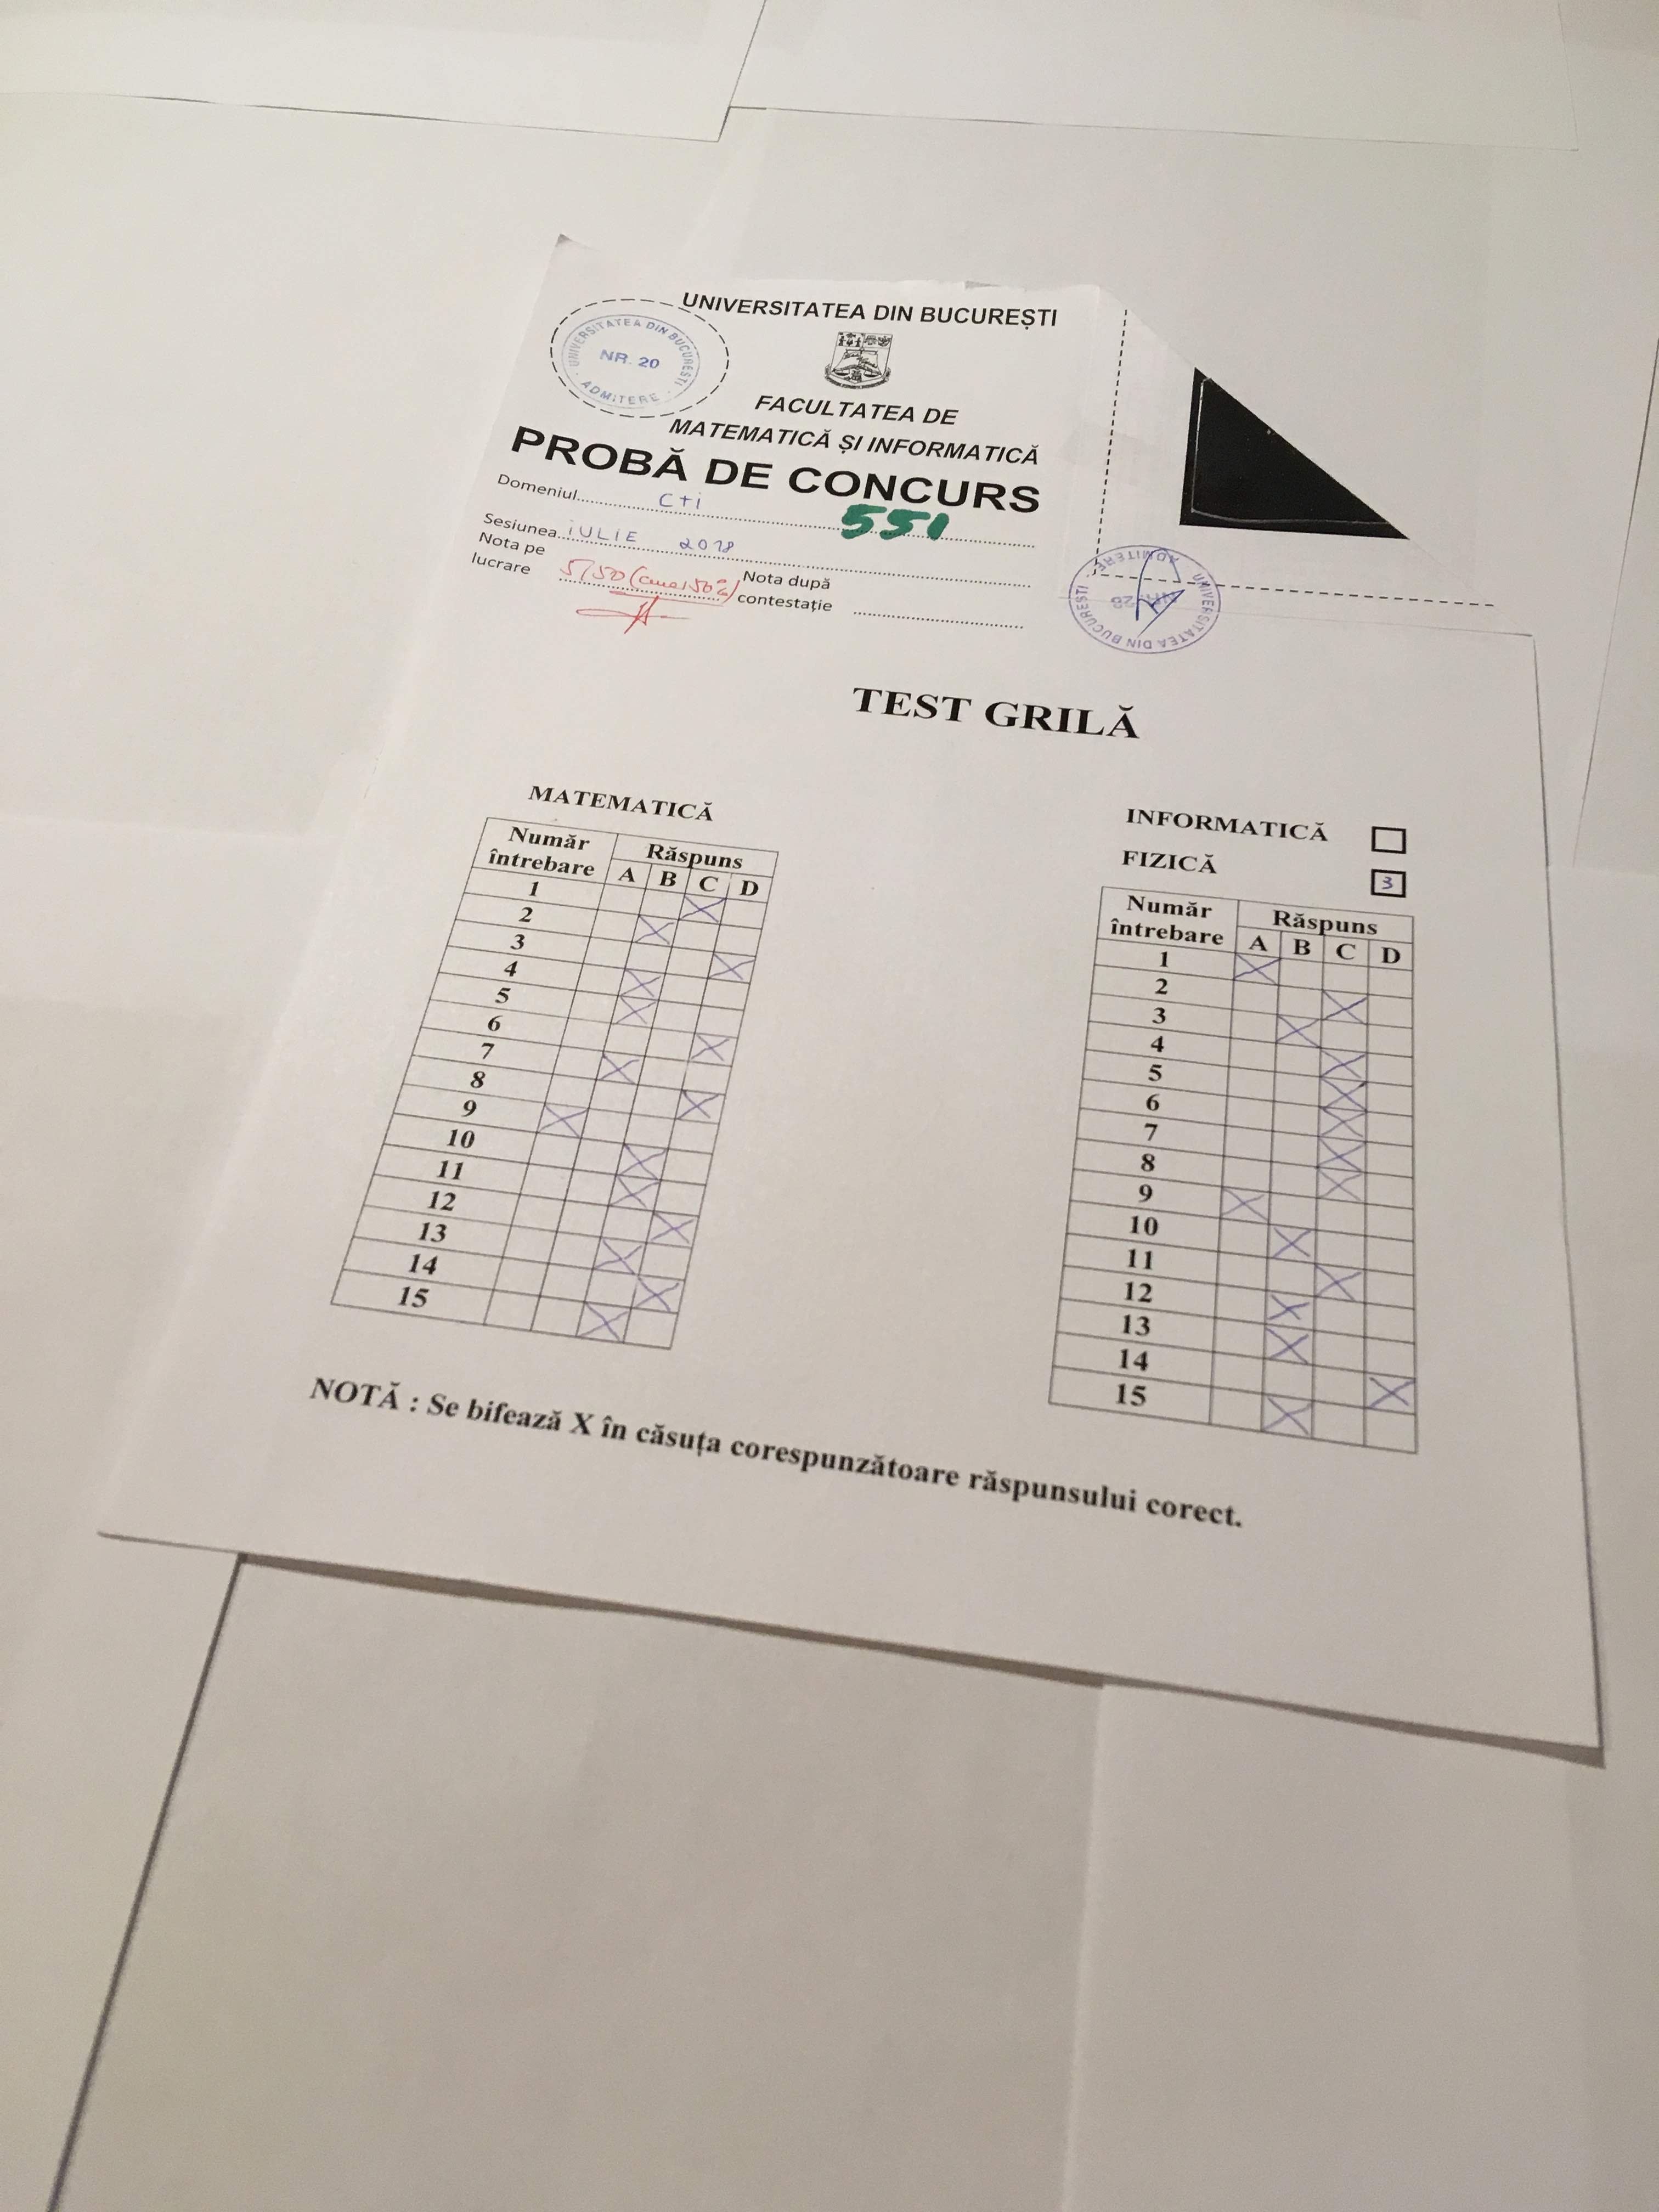 UNIVERSITATEA DIN BUCUREȘTI
UNIVERSITATEA DIN BUCUREȘTI
NR. 20
ADMITERE
FACULTATEA DE
MATEMATICĂ ȘI INFORMATICĂ
PROBĂ DE CONCURS
Domeniul CTI
551
Sesiunea IULIE 2018
Nota pe
lucrare 5,50 (cinci 50%)
Nota după
contestație
UNIVERSITATEA DIN BUCUREȘTI
ADMITERE
TEST GRILĂ
MATEMATICĂ
Număr
întrebare
Răspuns
A B C D
1 X
2 X
3 X
4 X
5 X
6 X
7 X
8 X
9 X
10 X
11 X
12 X
13 X
14 X
15 X
INFORMATICĂ
FIZICĂ 3
Număr
întrebare
Răspuns
A B C D
1 X
2 X
3 X
4 X
5 X
6 X
7 X
8 X
9 X
10 X
11 X
12 X
13 X
14 X
15 X
NOTĂ : Se bifează X în căsuța corespunzătoare răspunsului corect.